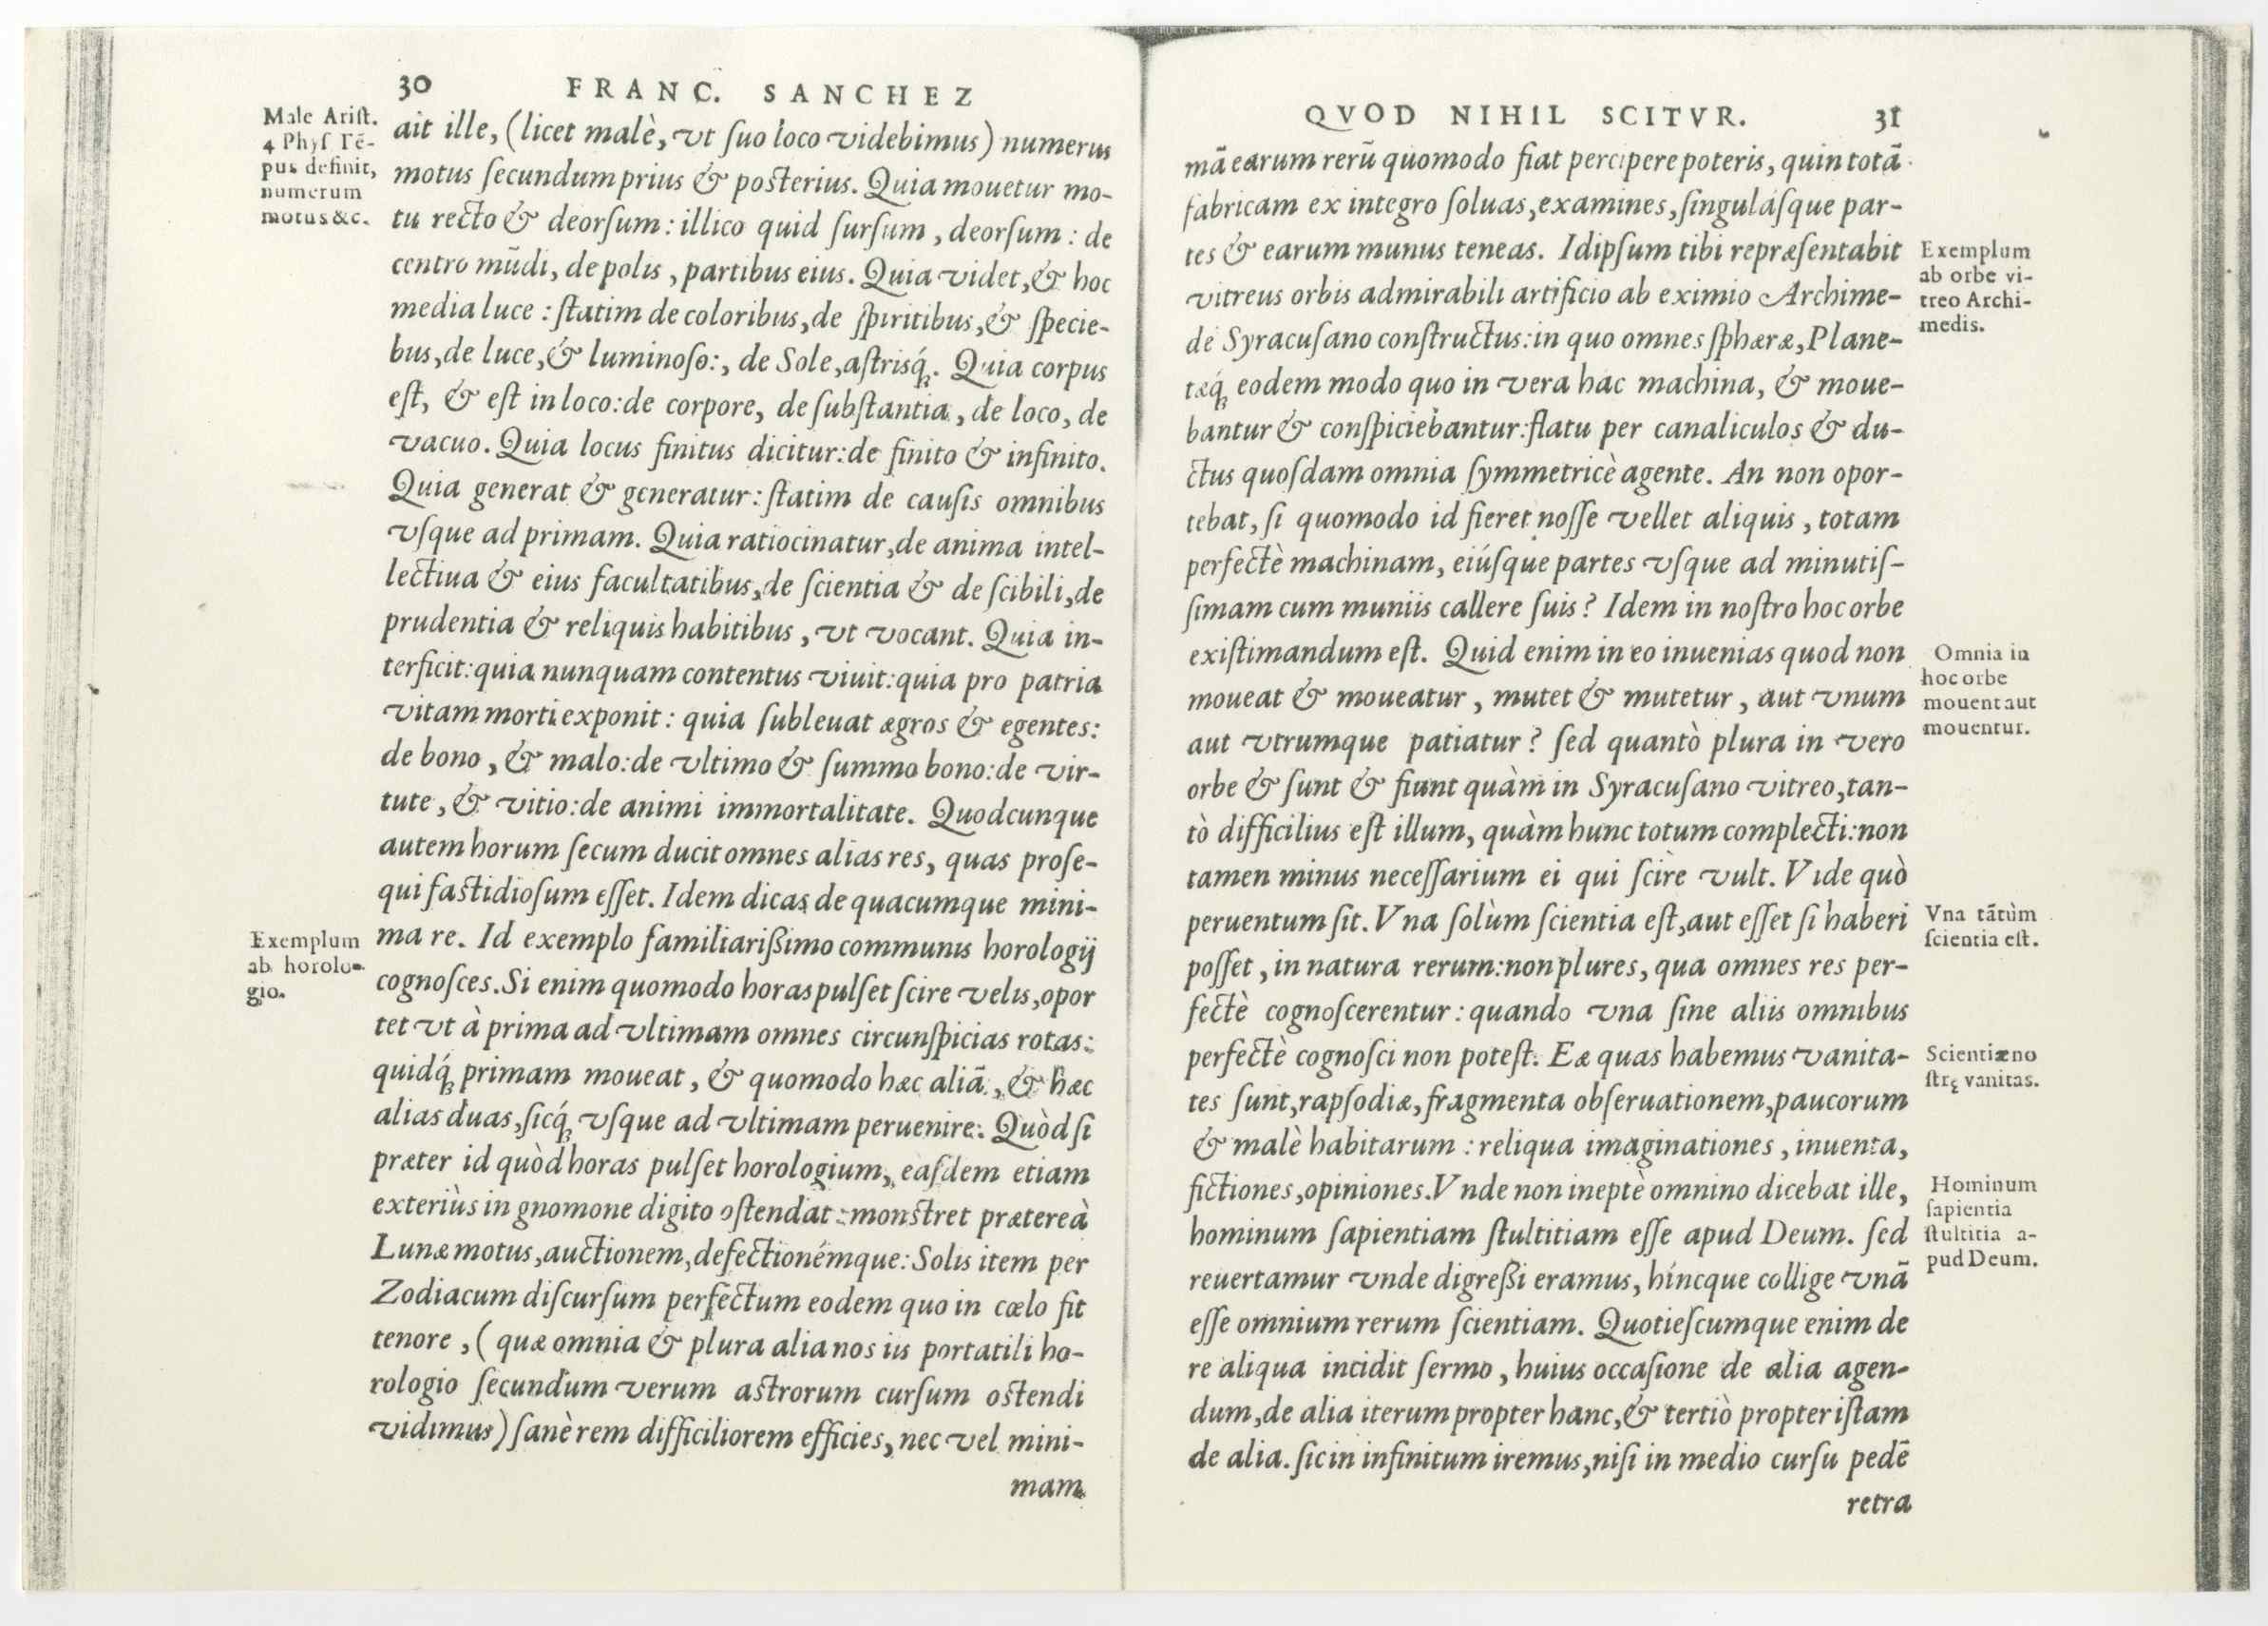 30 FRANC. SANCHEZ
Male Arist.
4 Phys Tē-
pus definit,
numerum
motus &c.
ait ille, (licet malè, vt suo loco videbimus) numerus
motus secundum prius & posterius. Quia mouetur mo-
tu recto & deorsum: illico quid sursum, deorsum: de
centro mūdi, de polis, partibus eius. Quia videt, & hoc
media luce: statim de coloribus, de spiritibus, & specie-
bus, de luce, & luminoso:, de Sole, astrisq́;. Quia corpus
est, & est in loco: de corpore, de substantia, de loco, de
vacuo. Quia locus finitus dicitur: de finito & infinito.
Quia generat & generatur: statim de causis omnibus
vsque ad primam. Quia ratiocinatur, de anima intel-
lectiua & eius facultatibus, de scientia & de scibili, de
prudentia & reliquis habitibus, vt vocant. Quia in-
terficit: quia nunquam contentus viuit: quia pro patria
vitam morti exponit: quia subleuat ægros & egentes:
de bono, & malo: de vltimo & summo bono: de vir-
tute, & vitio: de animi immortalitate. Quodcunque
autem horum secum ducit omnes alias res, quas prose-
qui fastidiosum esset. Idem dicas de quacumque mini-
ma re. Id exemplo familiarißimo communis horologij
cognosces. Si enim quomodo horas pulset scire velis, opor
tet vt à prima ad vltimam omnes circunspicias rotas:
quidq́; primam moueat, & quomodo hæc aliā, & hæc
alias duas, sicq́; vsque ad vltimam peruenire. Quòd si
præter id quòd horas pulset horologium, easdem etiam
exteriùs in gnomone digito ostendat: monstret prætereà
Lunæ motus, auctionem, defectionémque: Solis item per
Zodiacum discursum perfectum eodem quo in cœlo fit
tenore, (quæ omnia & plura alia nos iis portatili ho-
rologio secundum verum astrorum cursum ostendi
vidimus) sanè rem difficiliorem efficies, nec vel mini-
mam
Exemplum
ab horolo-
gio.
QVOD NIHIL SCITVR. 31
mā earum rerū quomodo fiat percipere poteris, quin totā
fabricam ex integro soluas, examines, singulásque par-
tes & earum munus teneas. Idipsum tibi repræsentabit
vitreus orbis admirabili artificio ab eximio Archime-
de Syracusano constructus: in quo omnes sphæræ, Plane-
tæq́; eodem modo quo in vera hac machina, & moue-
bantur & conspiciebantur: flatu per canaliculos & du-
ctus quosdam omnia symmetricè agente. An non opor-
tebat, si quomodo id fieret nosse vellet aliquis, totam
perfectè machinam, eiúsque partes vsque ad minutis-
simam cum muniis callere suis? Idem in nostro hoc orbe
existimandum est. Quid enim in eo inuenias quod non
moueat & moueatur, mutet & mutetur, aut vnum
aut vtrumque patiatur? sed quantò plura in vero
orbe & sunt & fiunt quàm in Syracusano vitreo, tan-
tò difficilius est illum, quàm hunc totum complecti: non
tamen minus necessarium ei qui scire vult. Vide quò
peruentum sit. Vna solùm scientia est, aut esset si haberi
posset, in natura rerum: non plures, qua omnes res per-
fectè cognoscerentur: quando vna sine aliis omnibus
perfectè cognosci non potest. Eæ quas habemus vanita-
tes sunt, rapsodiæ, fragmenta obseruationem, paucorum
& malè habitarum: reliqua imaginationes, inuenta,
fictiones, opiniones. Vnde non ineptè omnino dicebat ille,
hominum sapientiam stultitiam esse apud Deum. sed
reuertamur vnde digreßi eramus, híncque collige vnā
esse omnium rerum scientiam. Quotiescumque enim de
re aliqua incidit sermo, huius occasione de alia agen-
dum, de alia iterum propter hanc, & tertiò propter istam
de alia. sic in infinitum iremus, nisi in medio cursu pedē
retra
Exemplum
ab orbe vi-
treo Archi-
medis.
Omnia in
hoc orbe
mouent aut
mouentur.
Vna tātùm
scientia est.
Scientiæ no
strę vanitas.
Hominum
sapientia
stultitia a-
pud Deum.